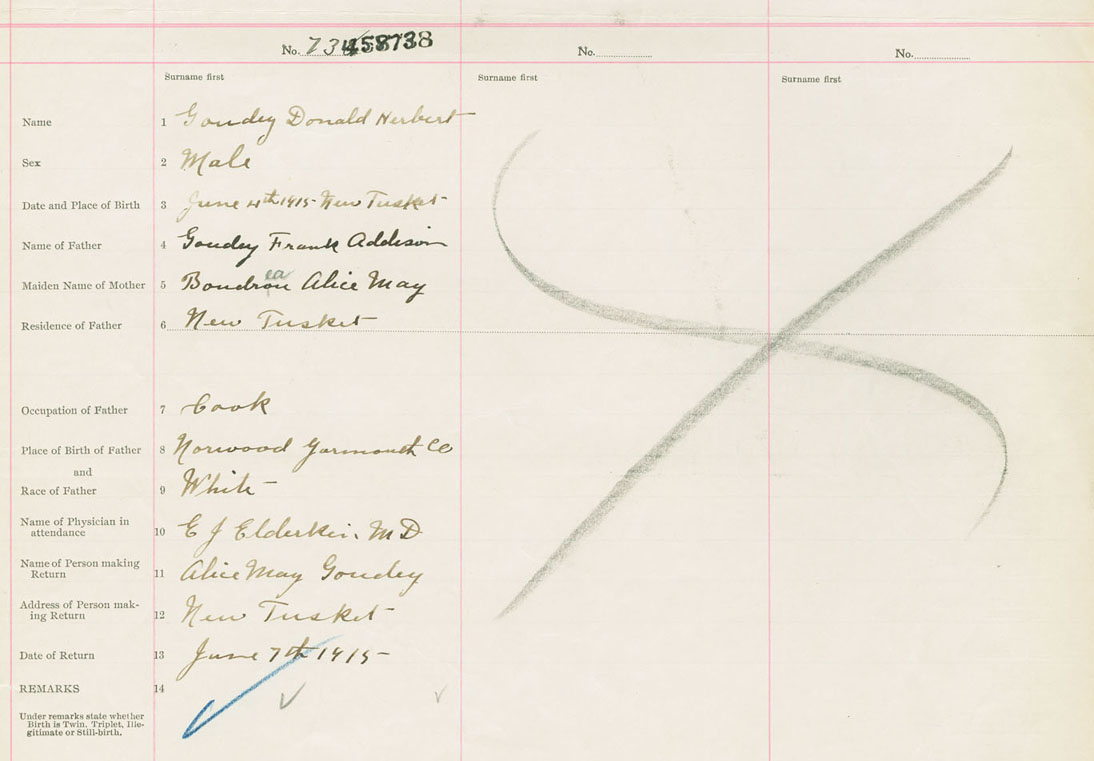 No. 458738
No.
No.
Surname first
Surname first
Surname first
Name 1 Goudey Donald Herbert
Sex 2 Male
Date and Place of Birth 3 June 4th 1915 New Tusket
Name of Father 4 Goudey Frank Addison
ea
Maiden Name of Mother 5 Boudrou Alice May
Residence of Father 6 New Tusket
Occupation of Father 7 Cook
Place of Birth of Father 8 Norwood Yarmouth Co
and
Race of Father 9 White
Name of Physician in
attendance 10 E J Elderkin. M D
Name of Person making
Return 11 Alice May Goudey
Address of Person mak-
ing Return 12 New Tusket
Date of Return 13 June 7th 1915
REMARKS 14
Under remarks state whether
Birth is Twin, Triplet, Ille-
gitimate or Still-birth.